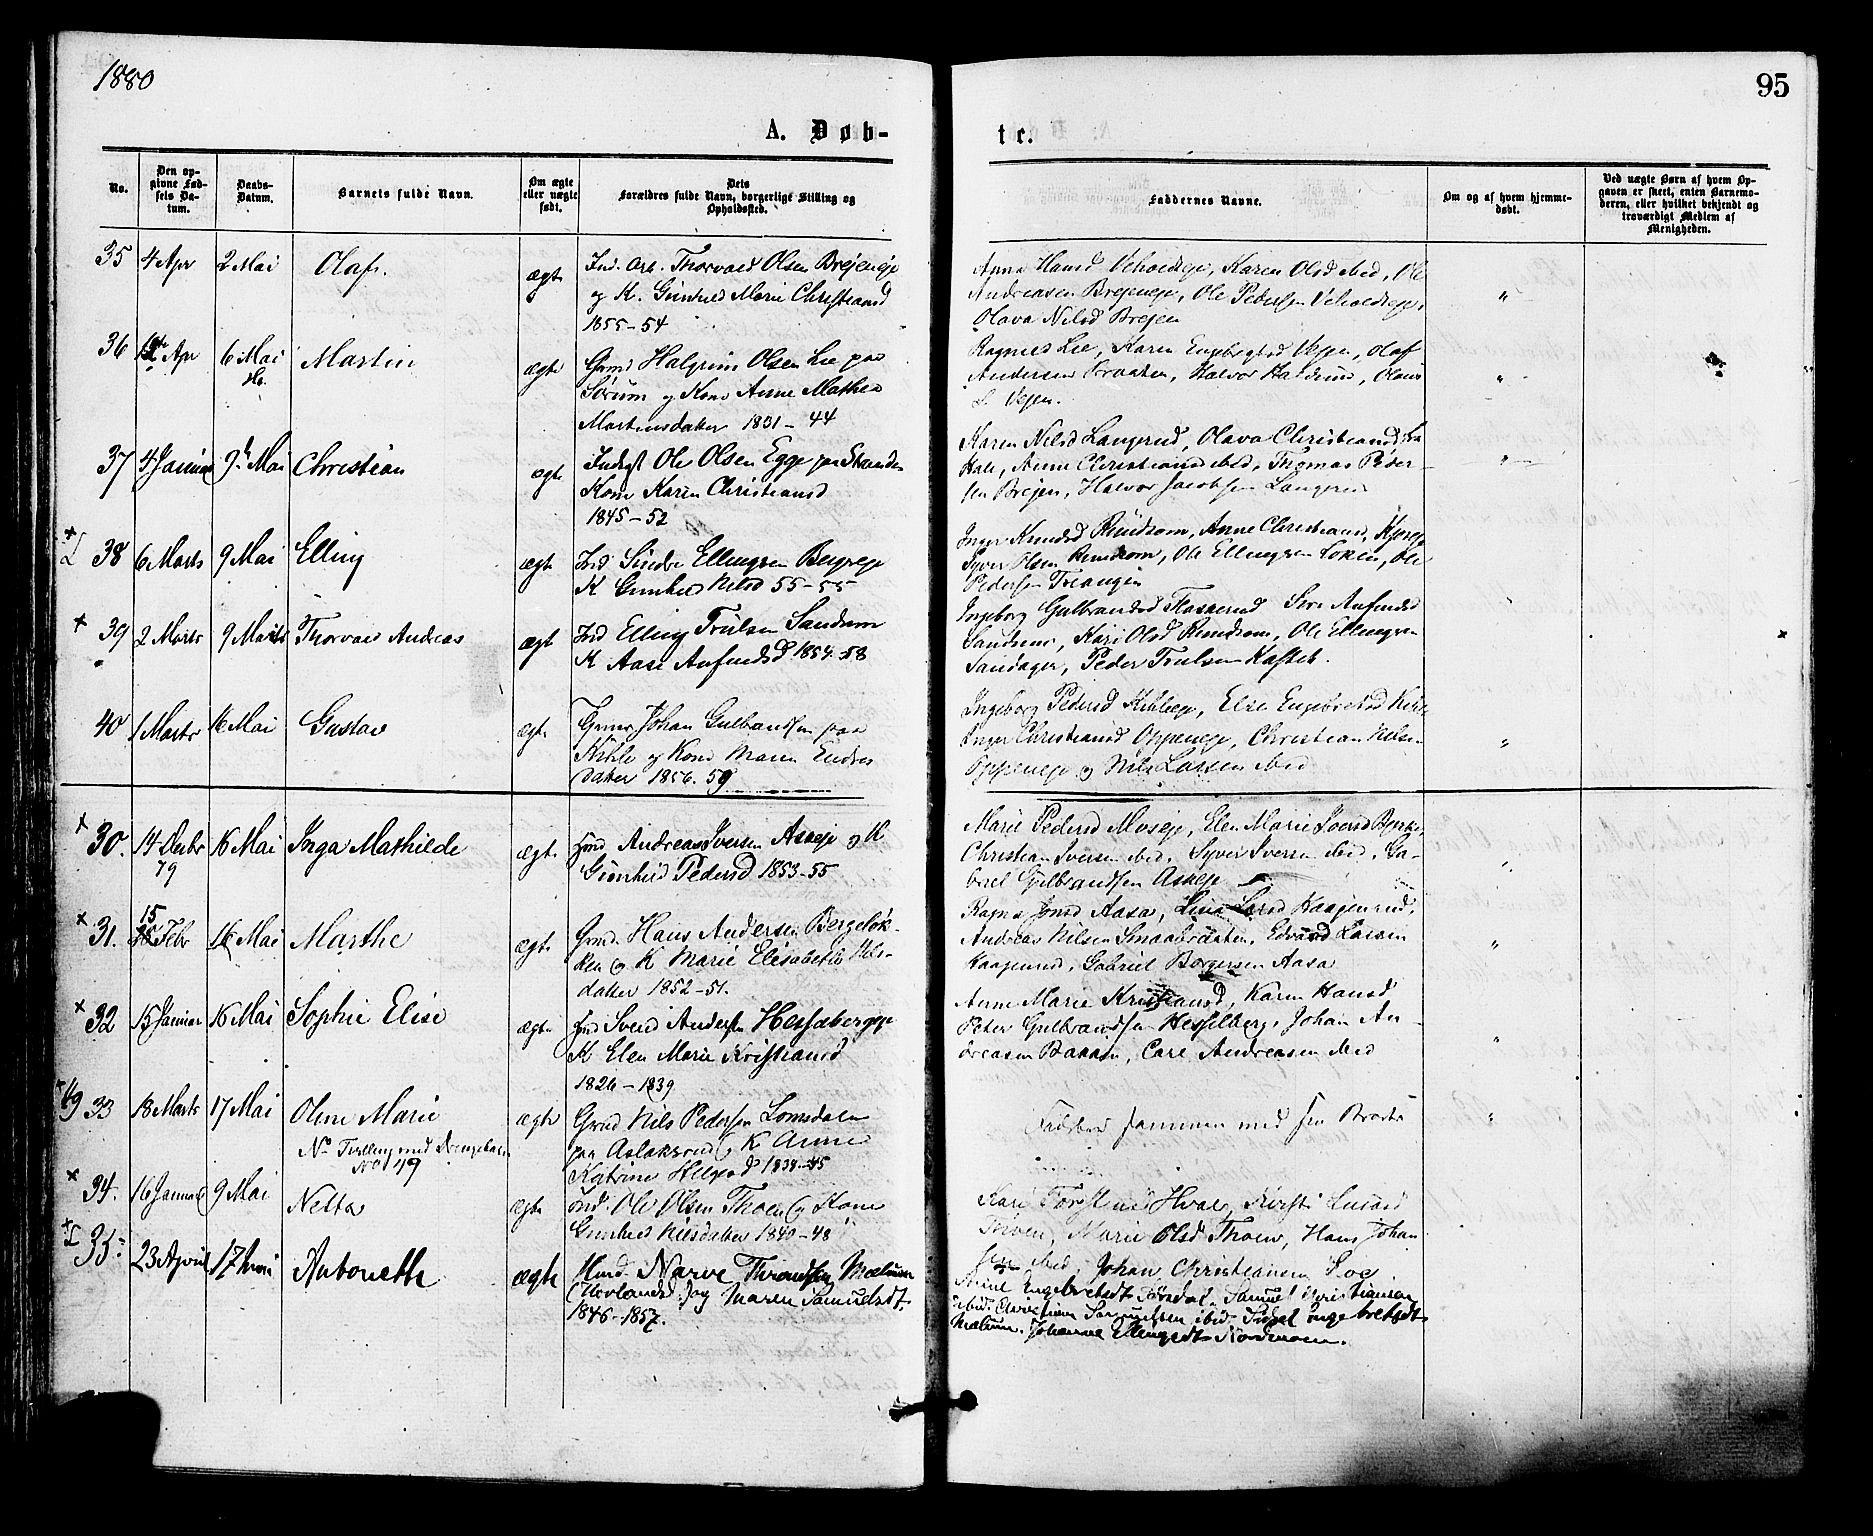 1880
95
A. Døb-
te.
No.
Den op-
givne Fød-
sels Da-
tum.
Daabs-
Datum.
Barnets fulde Navn.
Om ægte
eller uægte
født.
Dets
Forældres fulde Navn, borgerlige Stilling og
Opholdssted.
Faddernes Navne.
Om og af hvem hjemme-
døbt.
Ved uægte Børn af hvem Op-
gaven er skeet, enten Barnemo-
deren, eller hvilket bekjendt og
troværdigt Medlem af
Menigheden.
35 4 Apr 2 Mai Olaf. ægte
Ind. Arb. Thorvald Olsen Brejeneje
og K. Gunhild Marie Christiansd
1855-54
Anna Hansd Veholdseje, Karen Olsd ibid, Ole
Andreasen Brejeneje, Ole Pedersen Veholdseje,
Olava Nilsd Brejen "
36 Apr 6 Mai Martin ægte
Grmd Halgrim Olsen Lie paa
Sørum og Kone Anne Mathea
Martinsdatter 1831-44
Ragnild Lie, Karen Engebrgtsd Vejen, Olaf
Andersen Braaten, Halvor, Olaus
L. Vejen. "
37 4 Januar 9 Mai Christian ægte
Indrgst Ole Olsen Egge paa Stranden
Kone Karen Christiansd
1845-52
Karen Nilsd Langerud, Olava Christiansd
Anne Christiansd ibid, Thomas Peder-
sen Brejen, Halvor Jacobsen Langerud "
38 6 Marts 9 Mai Elling ægte
Ind Sindre Ellingsen Bergseje
K Gunhild Nilsd 55-55
Inger Knudsd Rundsom, Anne Christiansd
Syver Olsen Rundsom, Ole Ellingsen Loken, Ole
Pedersen
39 2 Marts 9 Marts Thorvald Andreas ægt
Ind Elling Trulsen Sandum
K Aase Aufindsd 1854-58
Ingeborg Gulbrandsd Siri Aufindsd
Sandum, Kari Olsd Rundsom, Ole Ellingsen
Sandager, Peder Trulsen Kastet.
40 1 Marts 16 Mai Gustav ægte
Grmd Johan Gulbrandsen paa
Kihle og Kone Maren Endres
datter 1856-59
Ingeborg Pedersd Kihleeje, Else Engebretsd Kihle
Inger Christiansd Oppeneje, Christian Nilsen
Oppeneje og Nils Larsen ibid "
30. 14 Decbr 79 16 Mai Inga Mathilde ægte
Ind Andreas Iversen Askeje og K
Gunhild Pedersd 1853-55
Marie Pedersd Moseje, Elen Marie Iversd
Christian Iversen ibid, Syver Iversen ibid, Ga-
briel Gulbrandsen Askeje
31. 15 Febr 16 Mai Marthe ægte
Grmd. Hans Andersen Bergeløk-
ken og K Marie Elisabeth Nils-
datter 1852-51.
Ragna Jonsd Aasa, Lina Larsd Kaagerud,
Andreas Nilsen Smaabraaten, Edvard Larsen
Kaagerud, Gabriel Borgersen Aasa "
32 15 Januar 16 Mai Sophie Elise ægte
Ind Svend Andersen Hesselbergeje
K Elen Marie Kristiansd
1826-1839
Anne Marie Kristiansd, Karen Hansd
Peter Gulbrandsen Hesselberg, Johan An-
dreasen Bakken, Carl Andreasen ibid "
33 18 Marts 17 Mai Oline Marie ægte
No Tvilling med Drengebarn
No 49
Grmd Nils Pedersen Lomsdalen
paa Aslaksrud og K Anne
Katrine Helgesd 1834-45
Fadsbor sammen med sin Broder "
34. 16 Januar 9 Mai Netta ægte
Ind. Ole Olsen Thoen og Kone
Gunhild Nilsdatter 1840-48
Kari Torstensd Hval, Kirsti
Thoen, Marie Olsd Thoen, Hans Johan
sen ibid, Johan Christiansen Loe
35 23 April 17 Mai Antonette ægte
Husd. Narve Throndsen Mælum
(Hovland) og Maren Samuelsdt.
1846-1857.
Anne Engebretsdt Sørdal, Samuel Christiansen
ibid. Christian Samuelsen ibid. Sidsel Ingebretsdt
Mælum. Johanne Ellingsdt Nordmoen.